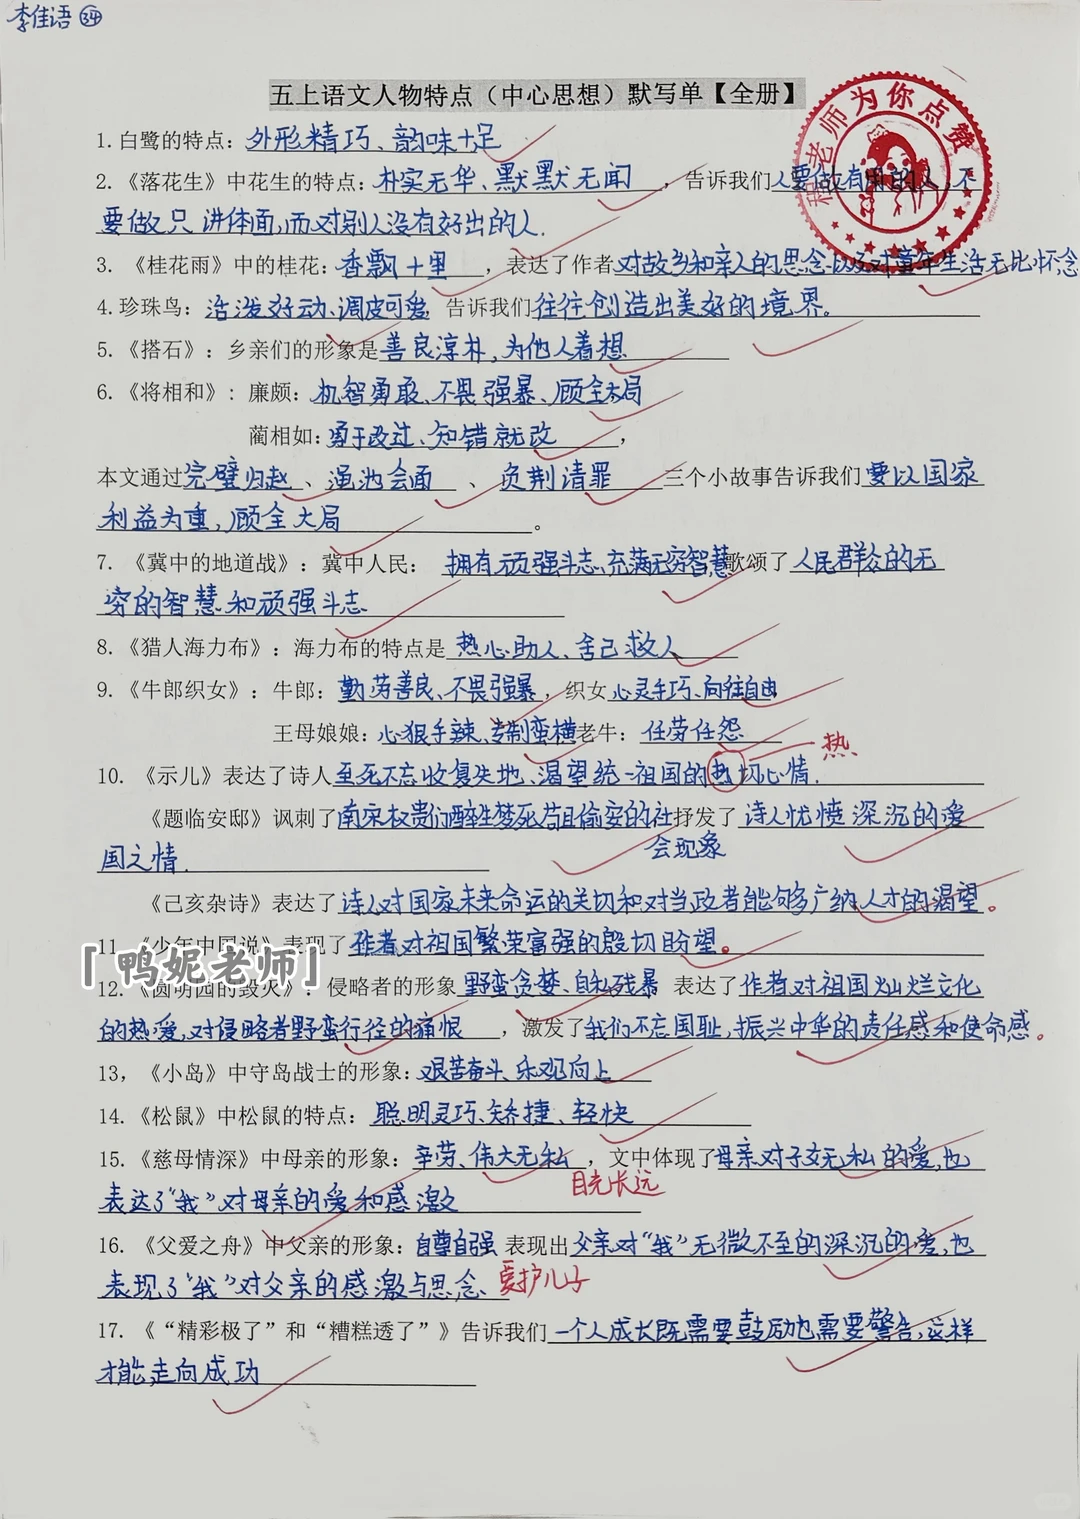 李佳语 34
五上语文人物特点（中心思想）默写单【全册】
1. 白鹭的特点：外形精巧、韵味十足
2. 《落花生》中花生的特点：朴实无华、默默无闻，告诉我们人要做有用的人，不
要做只讲体面，而对别人没有好出的人.
3. 《桂花雨》中的桂花：香飘十里，表达了作者对故乡和亲人的思念以及对童年生活无比怀念
4. 珍珠鸟：活泼好动、调皮可爱，告诉我们往往创造出美好的境界。
5. 《搭石》：乡亲们的形象是善良淳朴，为他人着想.
6. 《将相和》：廉颇：机智勇敢、不畏强暴、顾全大局
蔺相如：勇于改过、知错就改，
本文通过完璧归赵、渑池会面、负荆请罪三个小故事告诉我们要以国家
利益为重，顾全大局。
7. 《冀中的地道战》：冀中人民：拥有顽强斗志、充满无穷智慧歌颂了人民群众的无
穷的智慧和顽强斗志
8. 《猎人海力布》：海力布的特点是热心助人、舍己救人
9. 《牛郎织女》：牛郎：勤劳善良、不畏强暴，织女心灵手巧、向往自由
王母娘娘：心狠手辣、专制蛮横老牛：任劳任怨
热
10. 《示儿》表达了诗人至死不忘收复失地、渴望统一祖国的热切心情.
《题临安邸》讽刺了南宋权贵们醉生梦死苟且偷安的社抒发了诗人忧愤深沉的爱
会现象
国之情.
《己亥杂诗》表达了诗人对国家未来命运的关切和对当政者能够广纳人才的渴望。
11. 《少年中国说》表现了作者对祖国繁荣富强的殷切盼望。
「鸭妮老师」
12. 《圆明园的毁灭》：侵略者的形象野蛮贪婪、自私残暴 表达了作者对祖国灿烂文化
的热爱，对侵略者野蛮行径的痛恨，激发了我们不忘国耻，振兴中华的责任感和使命感。
13，《小岛》中守岛战士的形象：艰苦奋斗、乐观向上
14. 《松鼠》中松鼠的特点：聪明灵巧、矫捷、轻快
15. 《慈母情深》中母亲的形象：辛劳、伟大无私，文中体现了母亲对子女无私的爱，也
目光长远
表达了“我”对母亲的爱和感激
16. 《父爱之舟》中父亲的形象：自尊自强 表现出父亲对“我”无微不至的深沉的爱，也
表现了“我”对父亲的感激与思念、爱护儿子
17. 《“精彩极了”和“糟糕透了”》告诉我们一个人成长既需要鼓励也需要警告，这样
才能走向成功
老师为你点赞